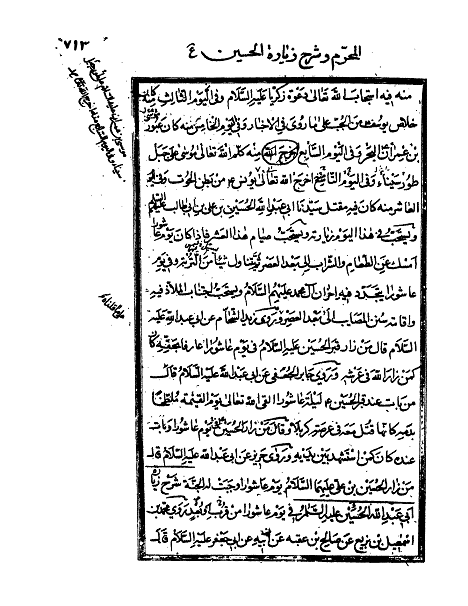 ٧١٣
المحرّم وشرح زيارة الحسين ع
منه فيه استجاب الله تعالى دعوة زكريا عليه السّلام وفى اليوم الثالث منه كان
خلاص يوسف من الجبّ على ما روى فى الاخبار وفى اليوم الخامس منه كان عبور موسى
بن عمران البحر وفى اليوم السّابع منه كلّم الله تعالى موسى على جبل
طور سيناء وفى اليوم التاسع اخرج الله تعالى يونس ع من بطن الحوت وفى اليوم
العاشر منه كان فيه مقتل سيّدنا ابى عبد الله الحسين بن على بن ابى طالب عليهم السّلام
ويستحبّ فى هذا اليوم زيارته ويستحبّ صيام هذا العشر فاذا كان يوم عاشورا
امسك عن الطّعام والشراب الى بعد العصر ثمّ يتناول شيئا من التربة وفى يوم
عاشورا يتجدّد فيه احزان آل محمد عليهم السّلام ويستحبّ اجتناب الملاذّ فيه
واقامة سنن المصائب الى بعد العصر وروى زيد الشّحام عن ابى عبد الله عليه
السّلام قال من زار قبر الحسين عليه السّلام فى يوم عاشورا عارفا بحقّه كان
كمن زار الله فى عرشه وروى جابر الجعفى عن ابى عبد الله عليه السّلام قال
من بات عند قبر الحسين ع ليلة عاشورا لقى الله تعالى يوم القيمة ملطّخا
بدمه كانّما قتل معه فى عرصة كربلا وقال من زار الحسين يوم عاشورا وبات
عنده كان كمن استشهد بين يديه وروى حريز عن ابى عبد الله عليه السّلام قال
من زار الحسين بن على عليهما السّلام يوم عاشورا وجبت له الجنّة شرح زيارة
ابى عبد الله الحسين عليه السّلام يوم عاشورا من قرب او بعد روى محمّد بن
اسمعيل بن بزيع عن صالح بن عقبه عن ابيه عن ابى جعفر عليه السّلام قال